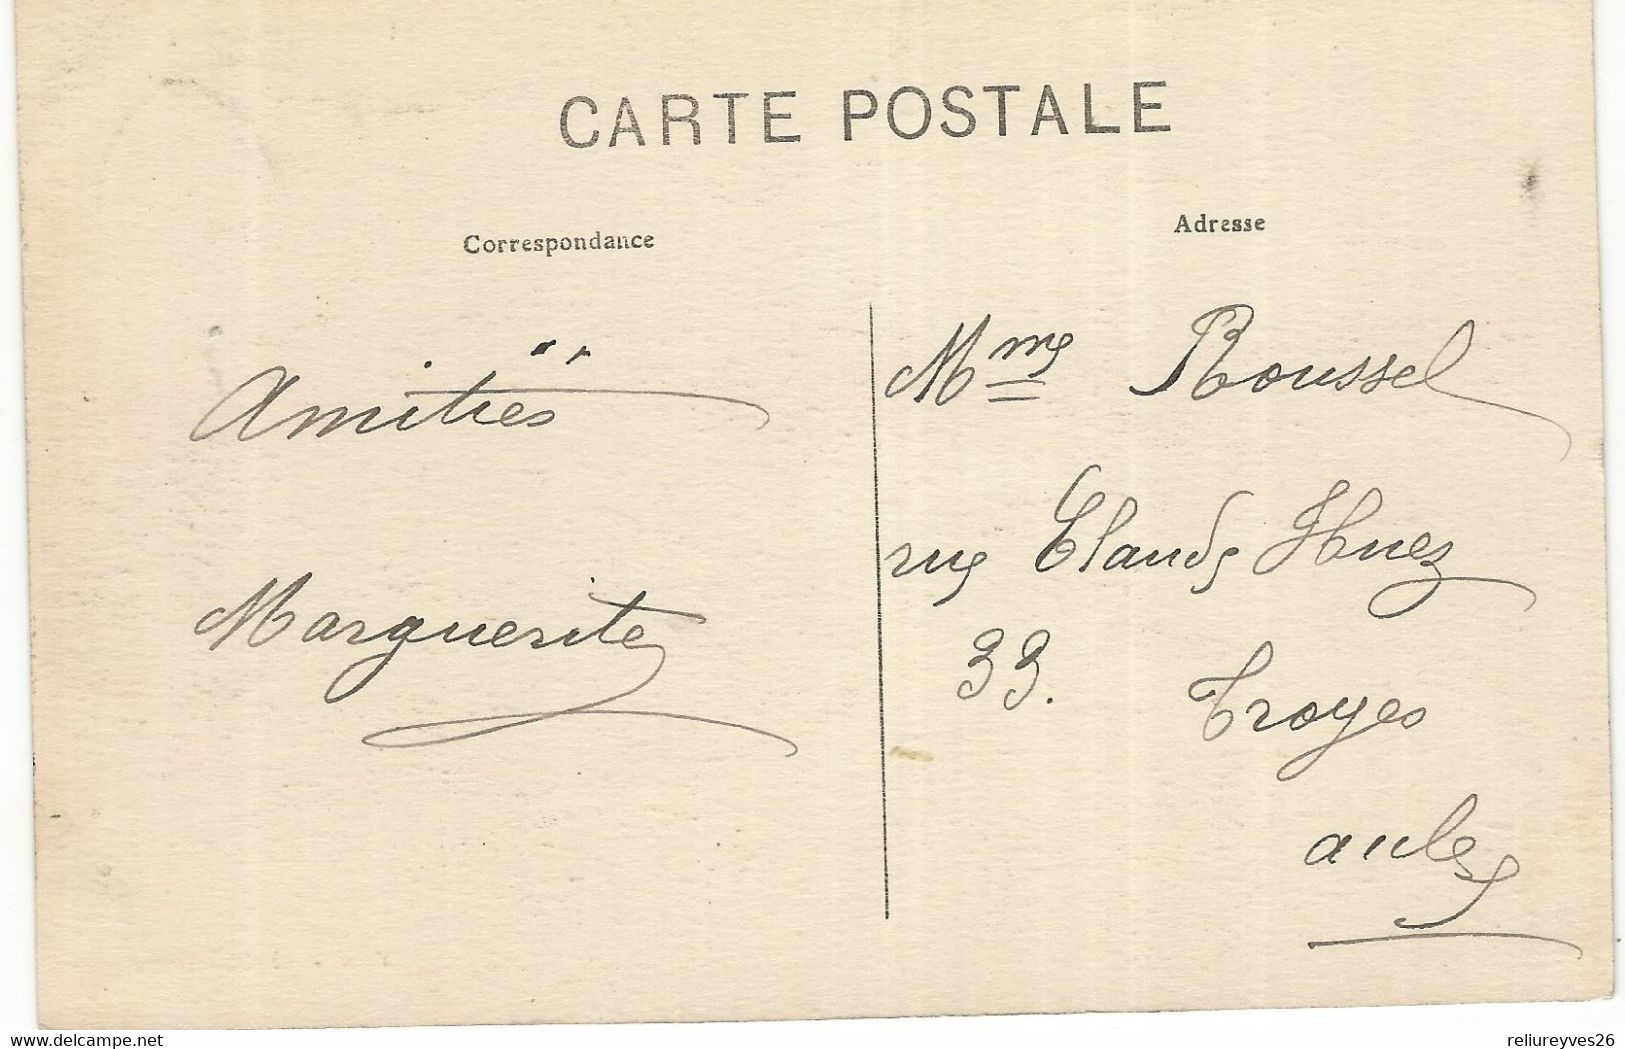 CARTE POSTALE
Correspondance
Adresse
Amitiés
Marguerite
Mme Roussel
rue Claude Huez
33.
Troyes
aube
Delcampe.net
reliureyves26